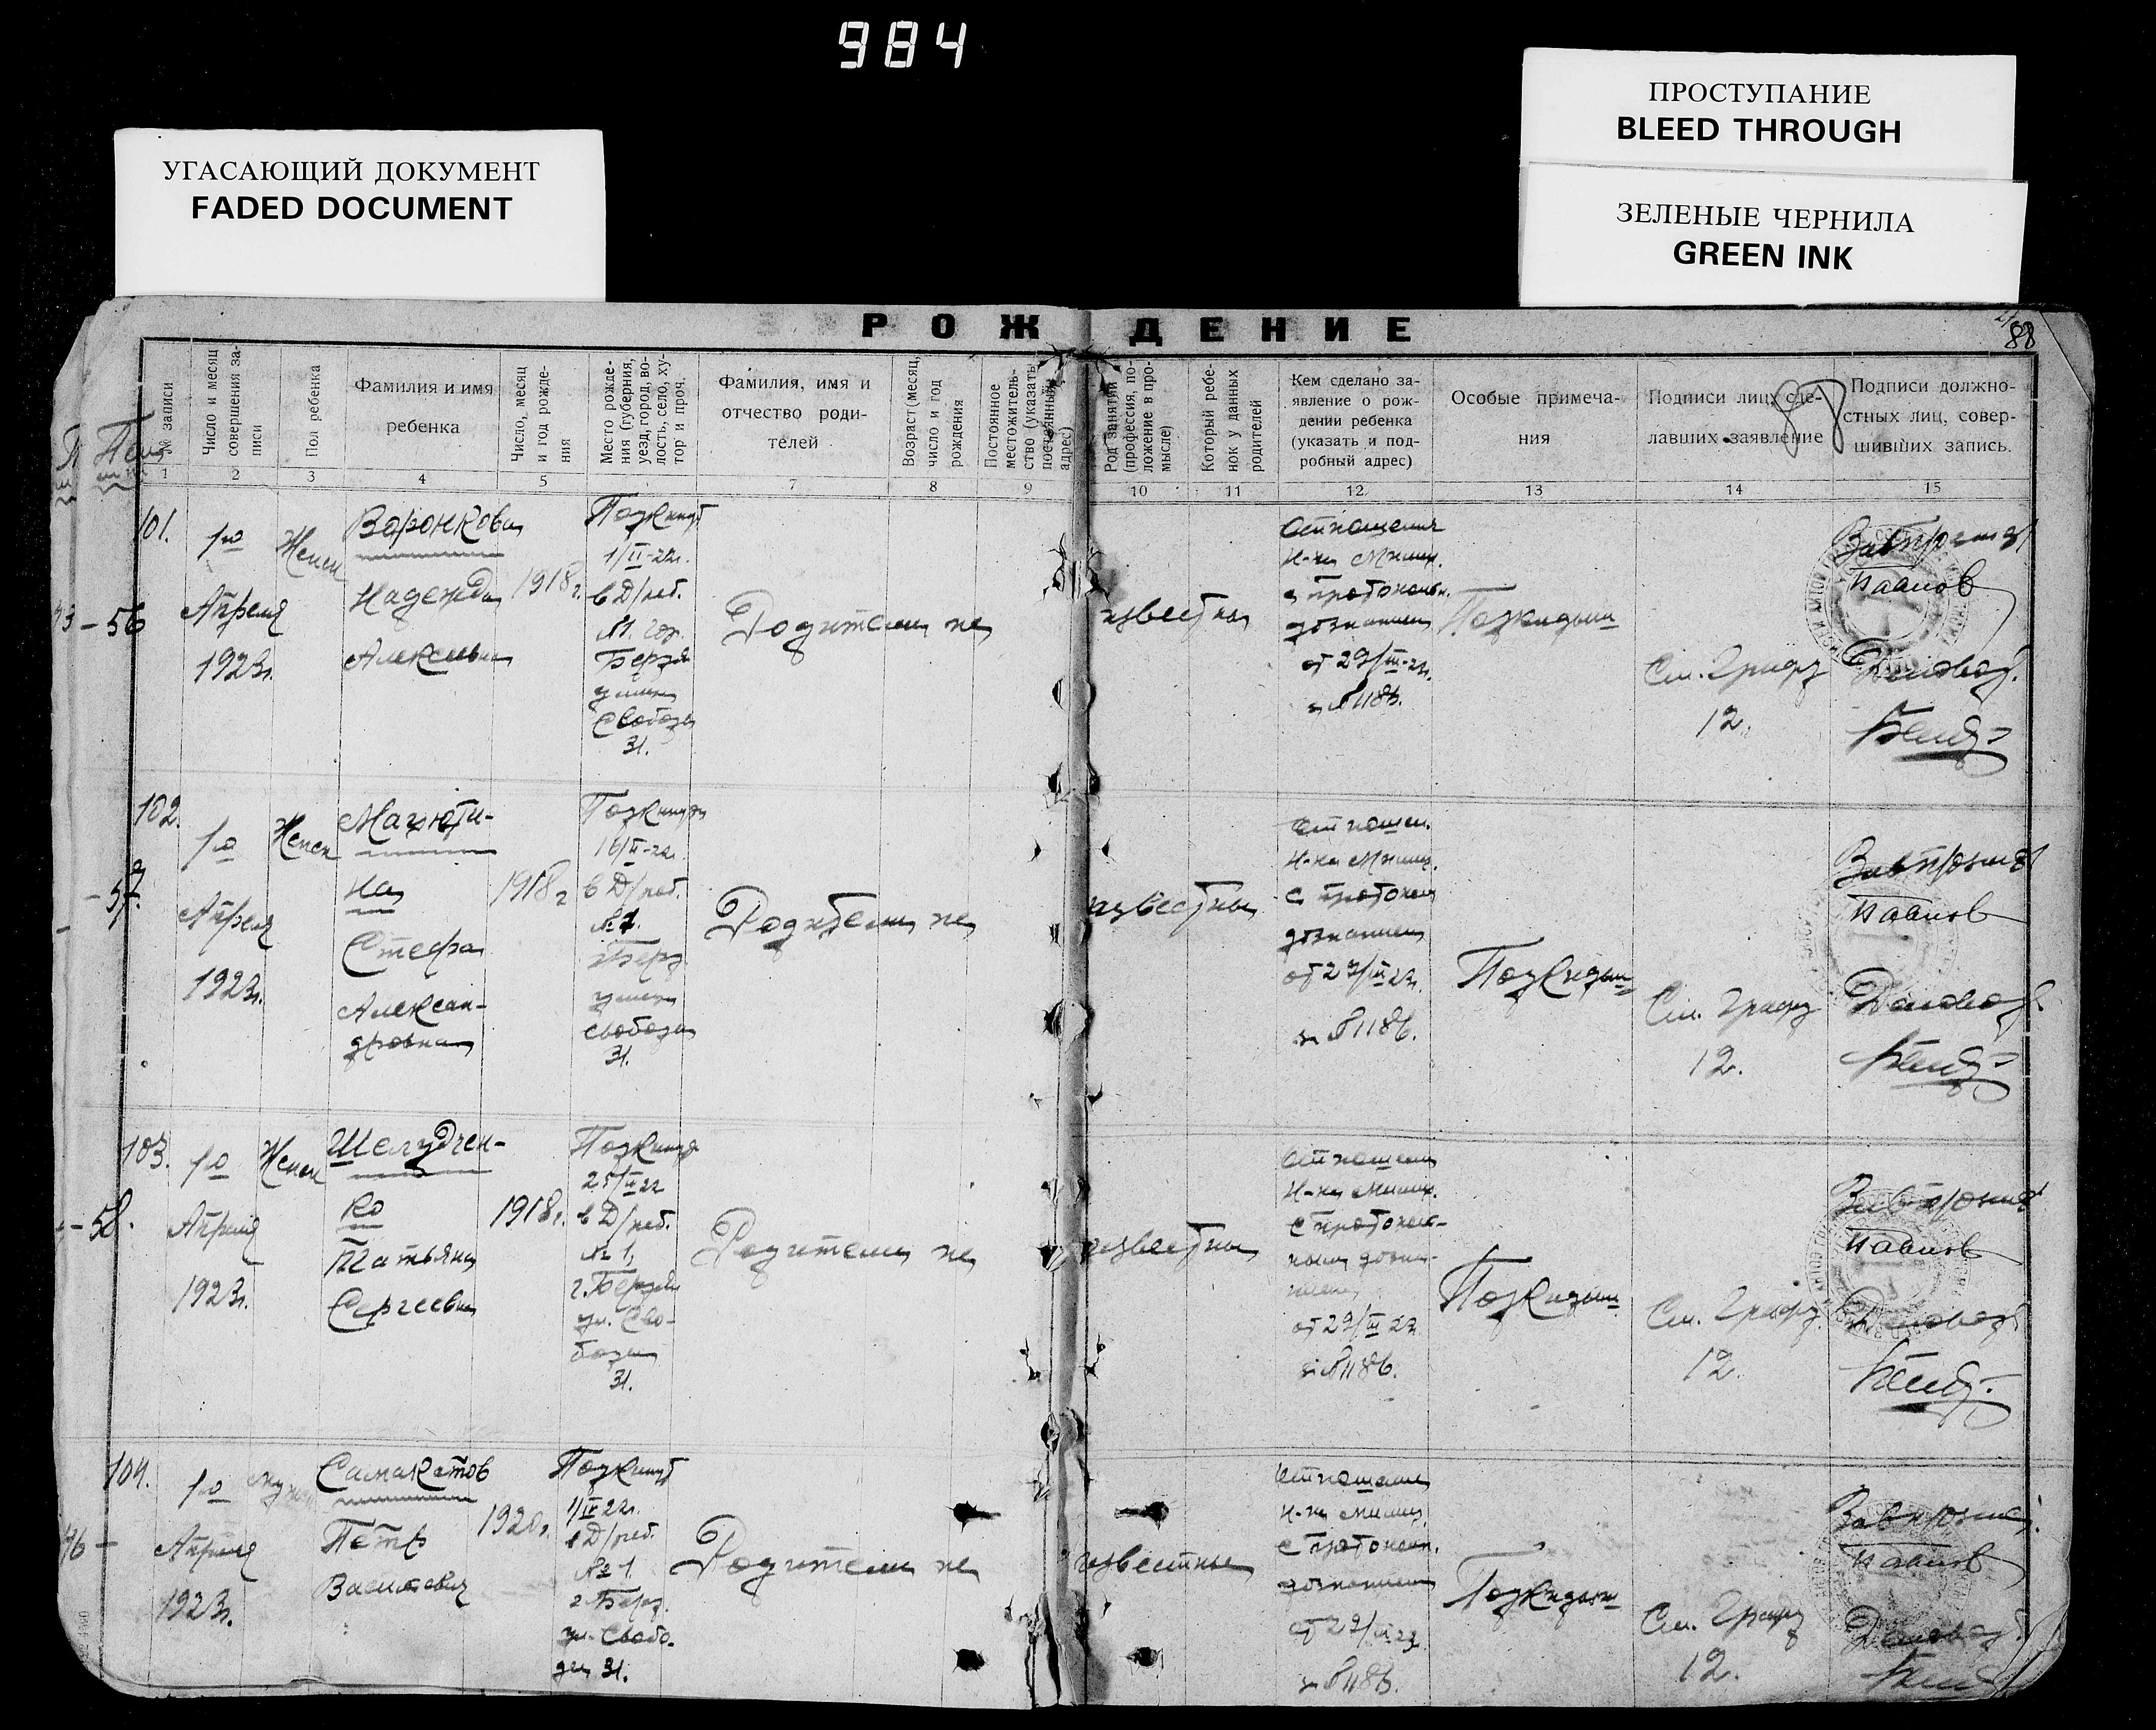 984
УГАСАЮЩИЙ ДОКУМЕНТ
FADED DOCUMENT
ПРОСТУПАНИЕ
BLEED THROUGH
ЗЕЛЕНЫЕ ЧЕРНИЛА
GREEN INK
РОЖДЕНИЕ
88
№ записи
Число и месяц
совершения за-
писи
Пол ребенка
Фамилия и имя
ребенка
Число, месяц
и год рожде-
ния
Место рожде-
ния (губерния,
уезд, город, во-
лость, село, ху-
тор и проч.
Фамилия, имя и
отчество роди-
телей
Возраст (месяц,
число и год
рождения
Постоянное
местожитель-
ство (указать
постоянный
адрес)
Род занятий
(профессия, по-
ложение в про-
мысле)
Который ребе-
нок у данных
родителей
Кем сделано за-
явление о рож-
дении ребенка
(указать и под-
робный адрес)
Особые примеча-
ния
Подписи лиц, сде-
лавших заявление
88
Подписи должно-
стных лиц, совер-
шивших запись.
1 2 3 4 5 7 8 9 10 11 12 13 14 15
101.
1-го
Апреля
1923г.
56
Женск
Воронкова
Надежда
Алексеевна
1918г.
Подкинут
1/II-22г.
в Д/реб.
№1. гор.
Бердян
улица
Свобода
31.
Родители не
известны
Отношения
Н-ка Милиц.
с протокол.
дознания
от 29/III-23г.
№ 1186.
Подкидыш
См. Графу
12.
Павлов
Деловод.
102.
1-го
Апреля
1923г.
57.
Женск
Малюти-
на
Стефа
Алексан-
дровна
1918г
Подкинута
16/II-22г.
в Д/реб.
№1.
Берд
улица
свобода
31.
Родители не
известны
Отношен.
Н-ка Милиц.
с протокол
дознания
№ 1186.
Подкидыш
См. Графу
12.
Павлов
Деловод.
103.
1-го
Апреля
1923г.
58.
Женск
Шелудчен-
ко
Татьяна
Сергеевна
1918г.
Подкинута
25/II 22
в Д/реб.
№1,
г. Бердян
ул. Сво-
бода
31.
Родители не
известны
Отношен
Н-ка Милиц.
№ 1186.
Подкидыш
См. Графу
12.
Павлов
Деловод
104.
1-го
Апреля
1923г.
Самокатов
Петр
Васильевич
1920г.
Подкинут
22г.
в Д/реб.
№1.
г. Берд.
ул. Свобо-
да 31.
Родители не
известны
Отношен
Н-ка Милиц.
с протокол.
дознания
№ 1186.
Подкидыш
См. Графу
12.
Павлов
Деловод.